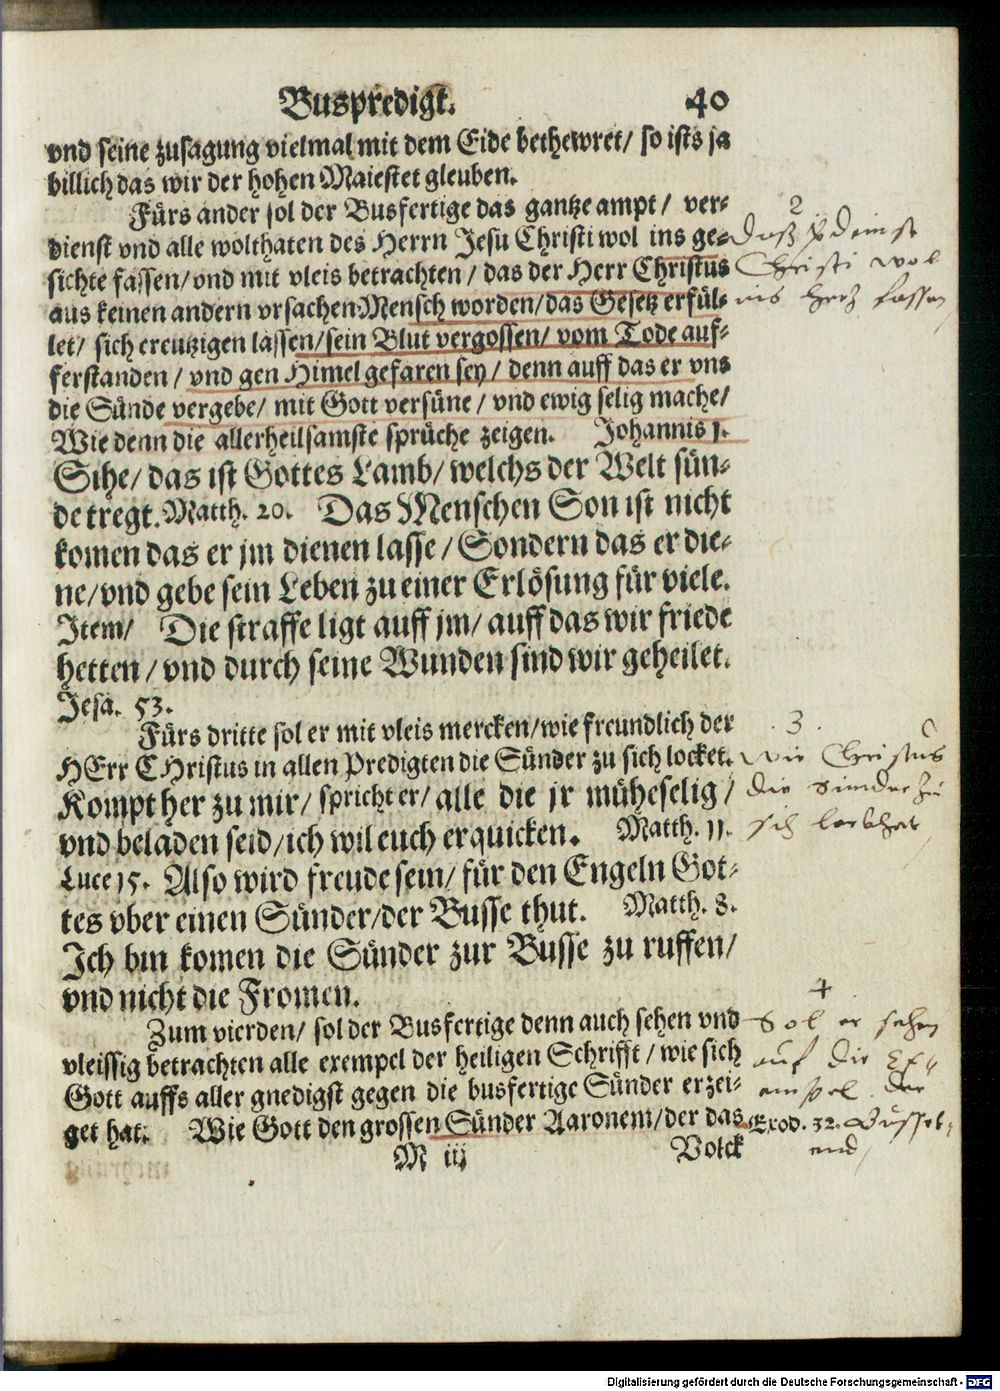 Buspredigt. 40
vnd seine zusagung vielmal mit dem Eide bethewret/ so ists ja
billich das wir der hohen Maiestet gleuben.
Fürs ander sol der Busfertige das gantze ampt/ ver⸗
dienst vnd alle wolthaten des Herrn Jesu Christi wol ins ge⸗
sichte fassen/ vnd mit vleis betrachten/ das der Herr Christus
aus keinen andern vrsachen Mensch worden/ das Gesetz erfül⸗
let/ sich creutzigen lassen/ sein Blut vergossen/ vom Tode auf⸗
ferstanden/ vnd gen Himel gefaren sey/ denn auff das er vns
die Sünde vergebe/ mit Gott versüne/ vnd ewig selig mache/
Wie denn die allerheilsamste sprüche zeigen. Johannis 1.
Sihe/ das ist Gottes Lamb/ welchs der Welt sün⸗
de tregt. Matth. 20. Das Menschen Son ist nicht
komen das er jm dienen lasse/ Sondern das er die⸗
ne/ vnd gebe sein Leben zu einer Erlösung für viele.
Item/ Die straffe ligt auff jm/ auff das wir friede
hetten/ vnd durch seine Wunden sind wir geheilet.
Jesa. 53.
Fürs dritte sol er mit vleis mercken/ wie freundlich der
HErr CHristus in allen Predigten die Sünder zu sich locket.
Kompt her zu mir/ spricht er/ alle die jr müheselig/
vnd beladen seid/ ich wil euch erquicken. Matth. 11.
Luce 15. Also wird freude sein/ für den Engeln Got⸗
tes vber einen Sünder/ der Busse thut. Matth. 8.
Ich bin komen die Sünder zur Busse zu ruffen/
vnd nicht die Fromen.
Zum vierden/ sol der Busfertige denn auch sehen vnd
vleissig betrachten alle exempel der heiligen Schrifft/ wie sich
Gott auffs aller gnedigst gegen die busfertige Sünder erzei⸗
get hat. Wie Gott den grossen Sünder Aaronem/ der das
M iij Volck
2
Daß
Christi wol
ins hertz fassen
3.
wie Christus
die sünder zu
sich
4
Sol er sehen
auf die Ex⸗
empel der
Exod. 32.
end
Digitalisierung gefördert durch die Deutsche Forschungsgemeinschaft - DFG